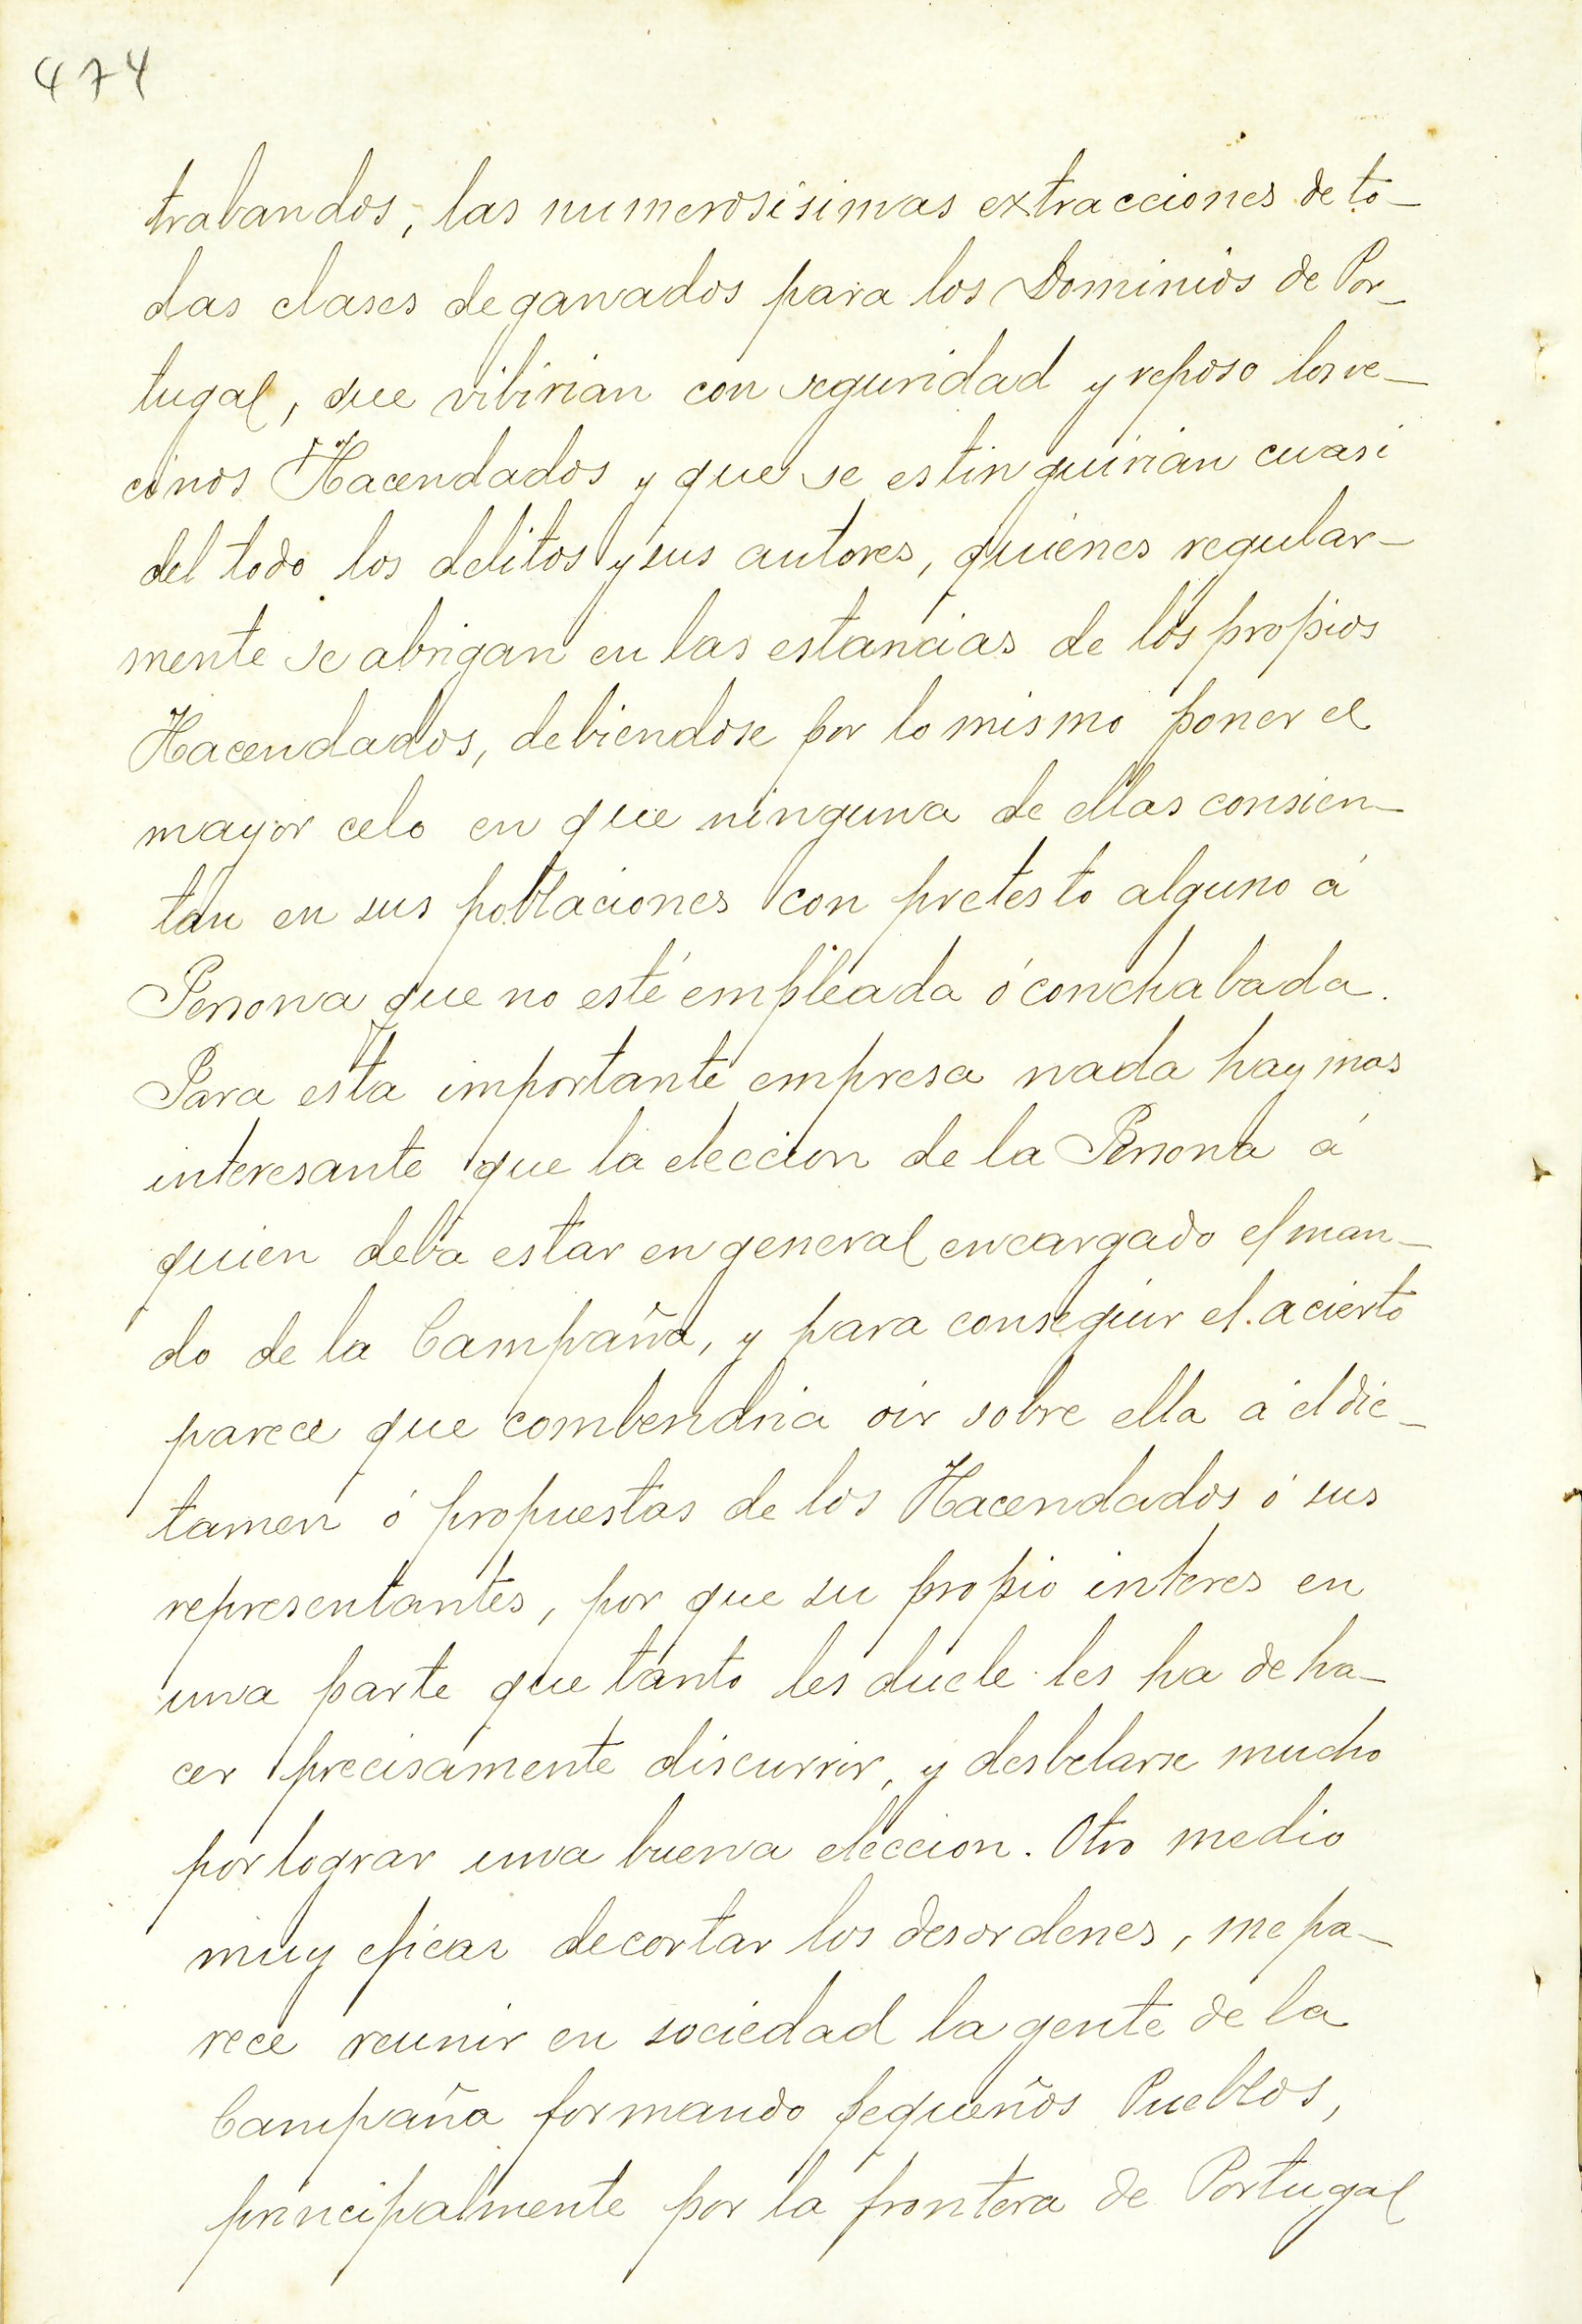 474
trabandos, las numerosisimas extracciones de to-
das clases de ganados para los Dominios de Por-
tugal, que vibirian con seguridad y reposo los ve-
cinos Hacendados y que se estinguirian cuasi
del todo los delitos y sus autores, quienes regular-
mente se abrigan en las estancias de los propios
Hacendados, debiendose por lo mismo poner el
mayor celo en que ninguna de ellas consien-
tan en sus poblaciones con pretesto alguno á
Persona que no esté empleada ó conchabada.
Para esta importante empresa nada hay mas
interesante que la eleccion de la Persona á
quien deba estar en general encargado el man-
do de la Campaña, y para conseguir el acierto
parece que combendria oir sobre ella á el dic-
tamen ó propuestas de los Hacendados ó sus
representantes, por que su propio interes en
una parte que tanto les duele les ha de ha-
cer precisamente discurrir, y desbelarse mucho
por lograr una buena eleccion. Otro medio
muy eficaz de cortar los desordenes, me pa-
rece reunir en sociedad la gente de la
Campaña formando pequeños Pueblos,
principalmente por la frontera de Portugal